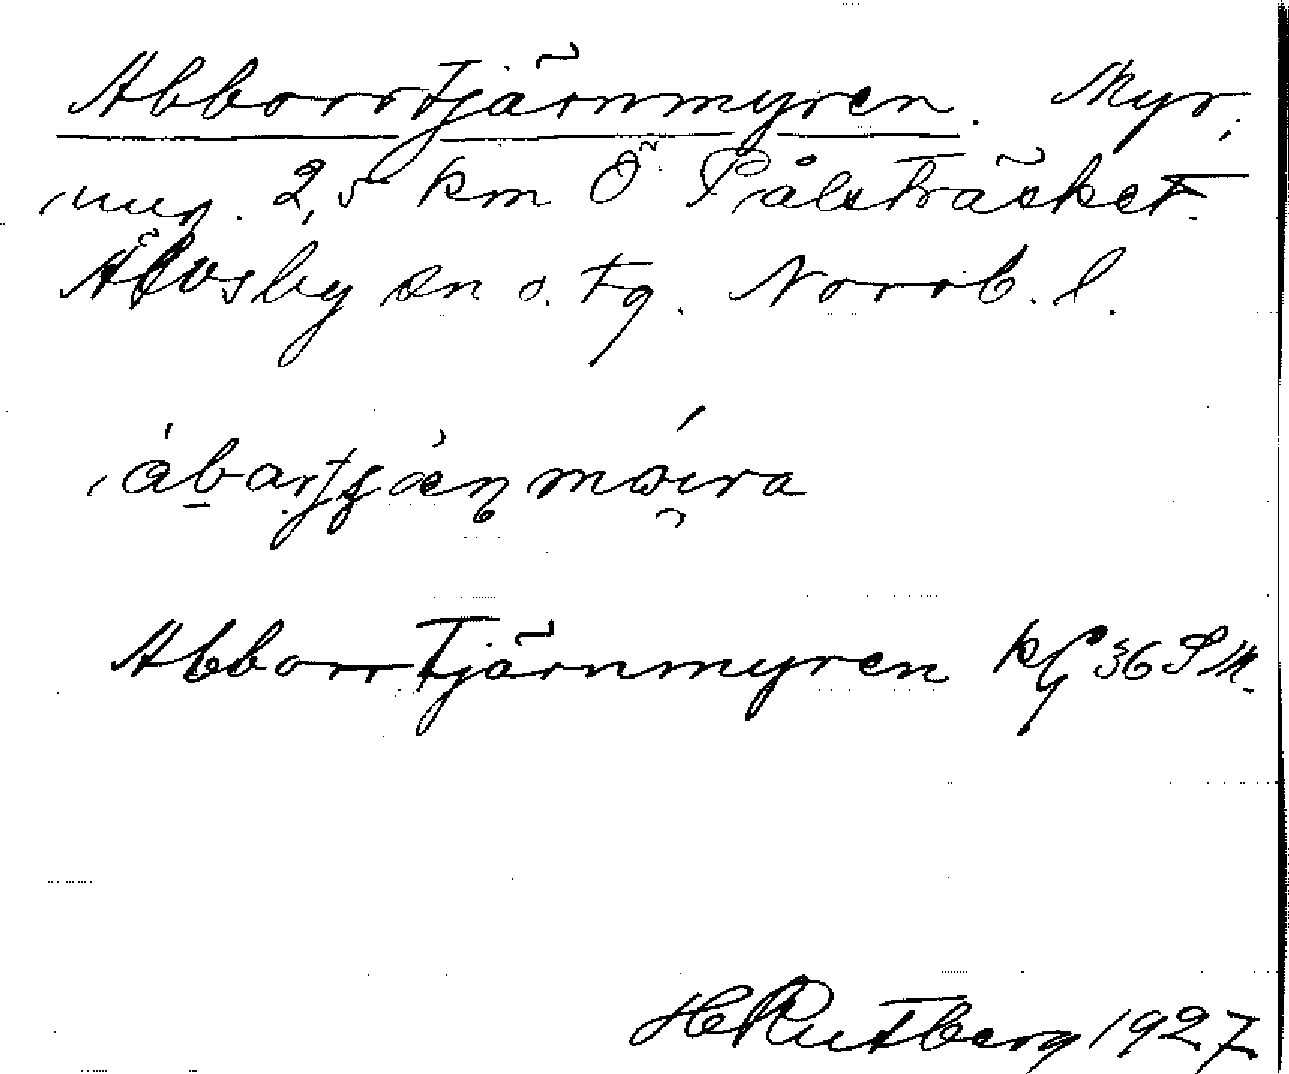 Abborrtjärnmyren. Myr,
ung. 2,5 km Ö Pålsträsket.
Älvsby sn o. tg. Norrb. l.
Abborrtjärnmyren kg 36 SM.
H Rutberg 1927